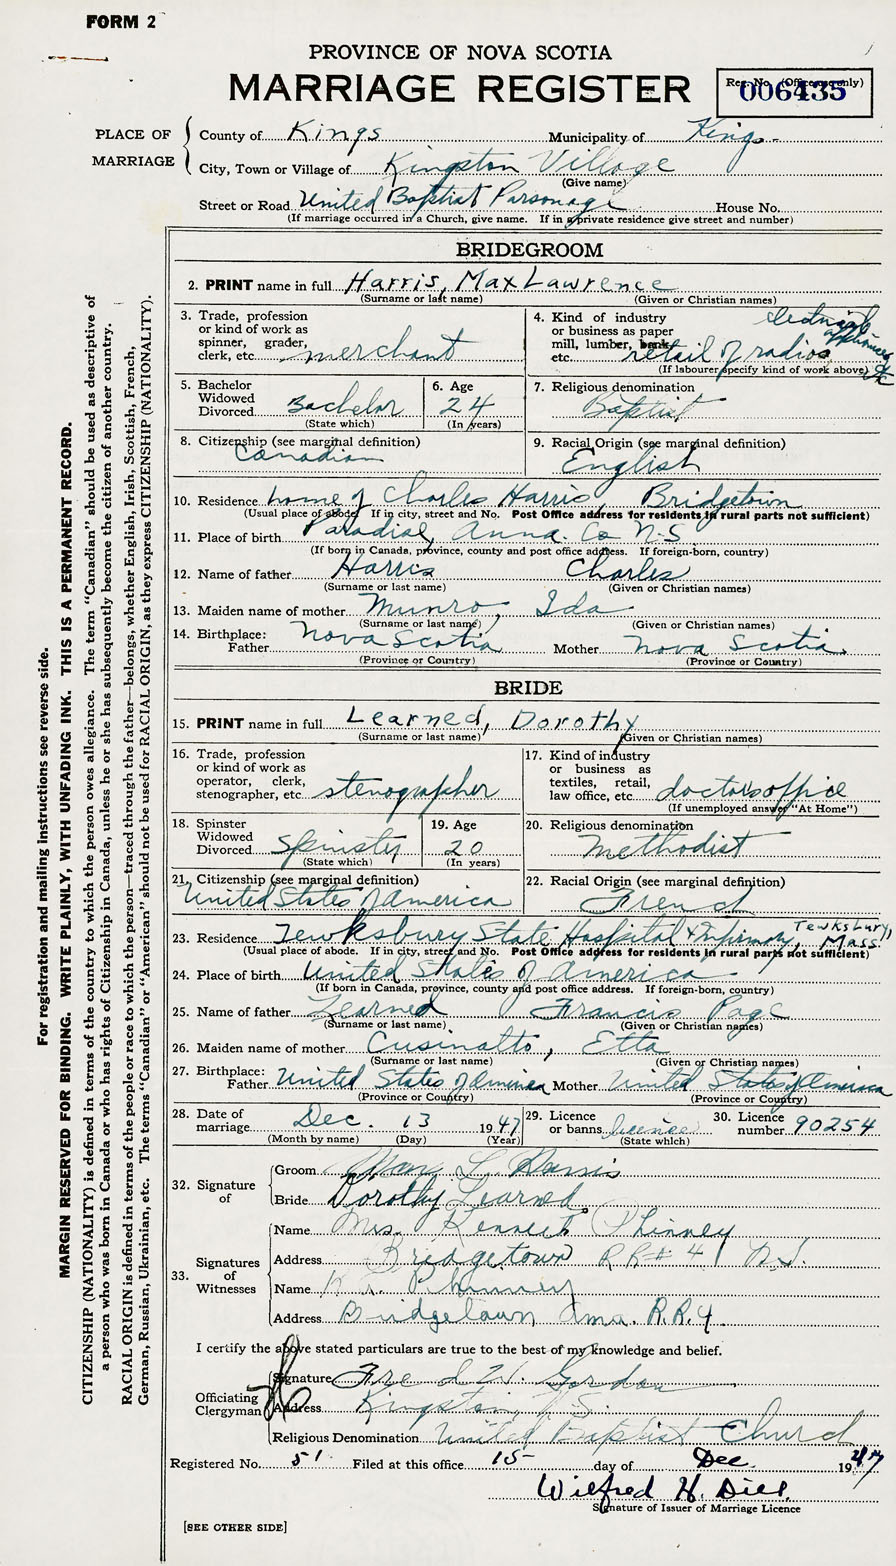 FORM 2
PROVINCE OF NOVA SCOTIA
MARRIAGE REGISTER
Reg. No. (Office use only)
006435
PLACE OF MARRIAGE
County of Kings Municipality of Kings
City, Town or Village of Kingston Village
(Give name)
Street or Road United Baptist Parsonage House No.
(If marriage occurred in a Church, give name. If in a private residence give street and number)
BRIDEGROOM
2. PRINT name in full Harris, Max Lawrence
(Surname or last name) (Given or Christian names)
3. Trade, profession or kind of work as spinner, grader, clerk, etc. merchant
4. Kind of industry or business as paper mill, lumber, bank, etc. retail of radios electrical appliances etc
(If labourer specify kind of work above)
5. Bachelor Widowed Divorced Bachelor
(State which)
6. Age 24
(In years)
7. Religious denomination
Baptist
8. Citizenship (see marginal definition)
Canadian
9. Racial Origin (see marginal definition)
English
10. Residence home of Charles Harris, Bridgetown
(Usual place of abode. If in city, street and No. Post Office address for residents in rural parts not sufficient)
11. Place of birth Paradise, Anna. Co N.S.
(If born in Canada, province, county and post office address. If foreign-born, country)
12. Name of father Harris Charles
(Surname or last name) (Given or Christian names)
13. Maiden name of mother Munro, Ida
(Surname or last name) (Given or Christian names)
14. Birthplace: Father Nova Scotia Mother Nova Scotia.
(Province or Country) (Province or Country)
BRIDE
15. PRINT name in full Learned, Dorothy
(Surname or last name) (Given or Christian names)
16. Trade, profession or kind of work as operator, clerk, stenographer, etc. stenographer
17. Kind of industry or business as textiles, retail, law office, etc. doctors office
(If unemployed answer "At Home")
18. Spinster Widowed Divorced Spinster
(State which)
19. Age 20
(In years)
20. Religious denomination
Methodist
21. Citizenship (see marginal definition)
United States of America
22. Racial Origin (see marginal definition)
French
23. Residence Tewksbury State Hospital & Infirmary, Tewksbury, Mass.
(Usual place of abode. If in city, street and No. Post Office address for residents in rural parts not sufficient)
24. Place of birth United States of America
(If born in Canada, province, county and post office address. If foreign-born, country)
25. Name of father Learned Francis Page
(Surname or last name) (Given or Christian names)
26. Maiden name of mother Cusinalto, Etta
(Surname or last name) (Given or Christian names)
27. Birthplace: Father United States of America Mother United States of America
(Province or Country) (Province or Country)
28. Date of marriage Dec. 13 1947
(Month by name) (Day) (Year)
29. Licence or banns licence
(State which)
30. Licence number 90254
32. Signature of
Groom Max L. Harris
Bride Dorothy Learned.
33. Signatures of Witnesses
Name Mrs. Kenneth Phinney
Address Bridgetown R R # 4 N.S.
Name Phinney
Address Bridgetown Anna. R.R.4.
I certify the above stated particulars are true to the best of my knowledge and belief.
Officiating Clergyman
Signature Fred W. Gordon
Address Kingston N.S.
Religious Denomination United Baptist Church
Registered No. 51 Filed at this office 15 day of Dec. 1947
Wilfred H. Dill.
Signature of Issuer of Marriage Licence
[SEE OTHER SIDE]
For registration and mailing instructions see reverse side.
MARGIN RESERVED FOR BINDING. WRITE PLAINLY, WITH UNFADING INK. THIS IS A PERMANENT RECORD.
CITIZENSHIP (NATIONALITY) is defined in terms of the country to which the person owes allegiance. The term "Canadian" should be used as descriptive of
a person who was born in Canada or who has rights of Citizenship in Canada, unless he or she has subsequently become the citizen of another country.
RACIAL ORIGIN is defined in terms of the people or race to which the person—traced through the father—belongs, whether English, Irish, Scottish, French,
German, Russian, Ukrainian, etc. The terms "Canadian" or "American" should not be used for RACIAL ORIGIN, as they express CITIZENSHIP (NATIONALITY).